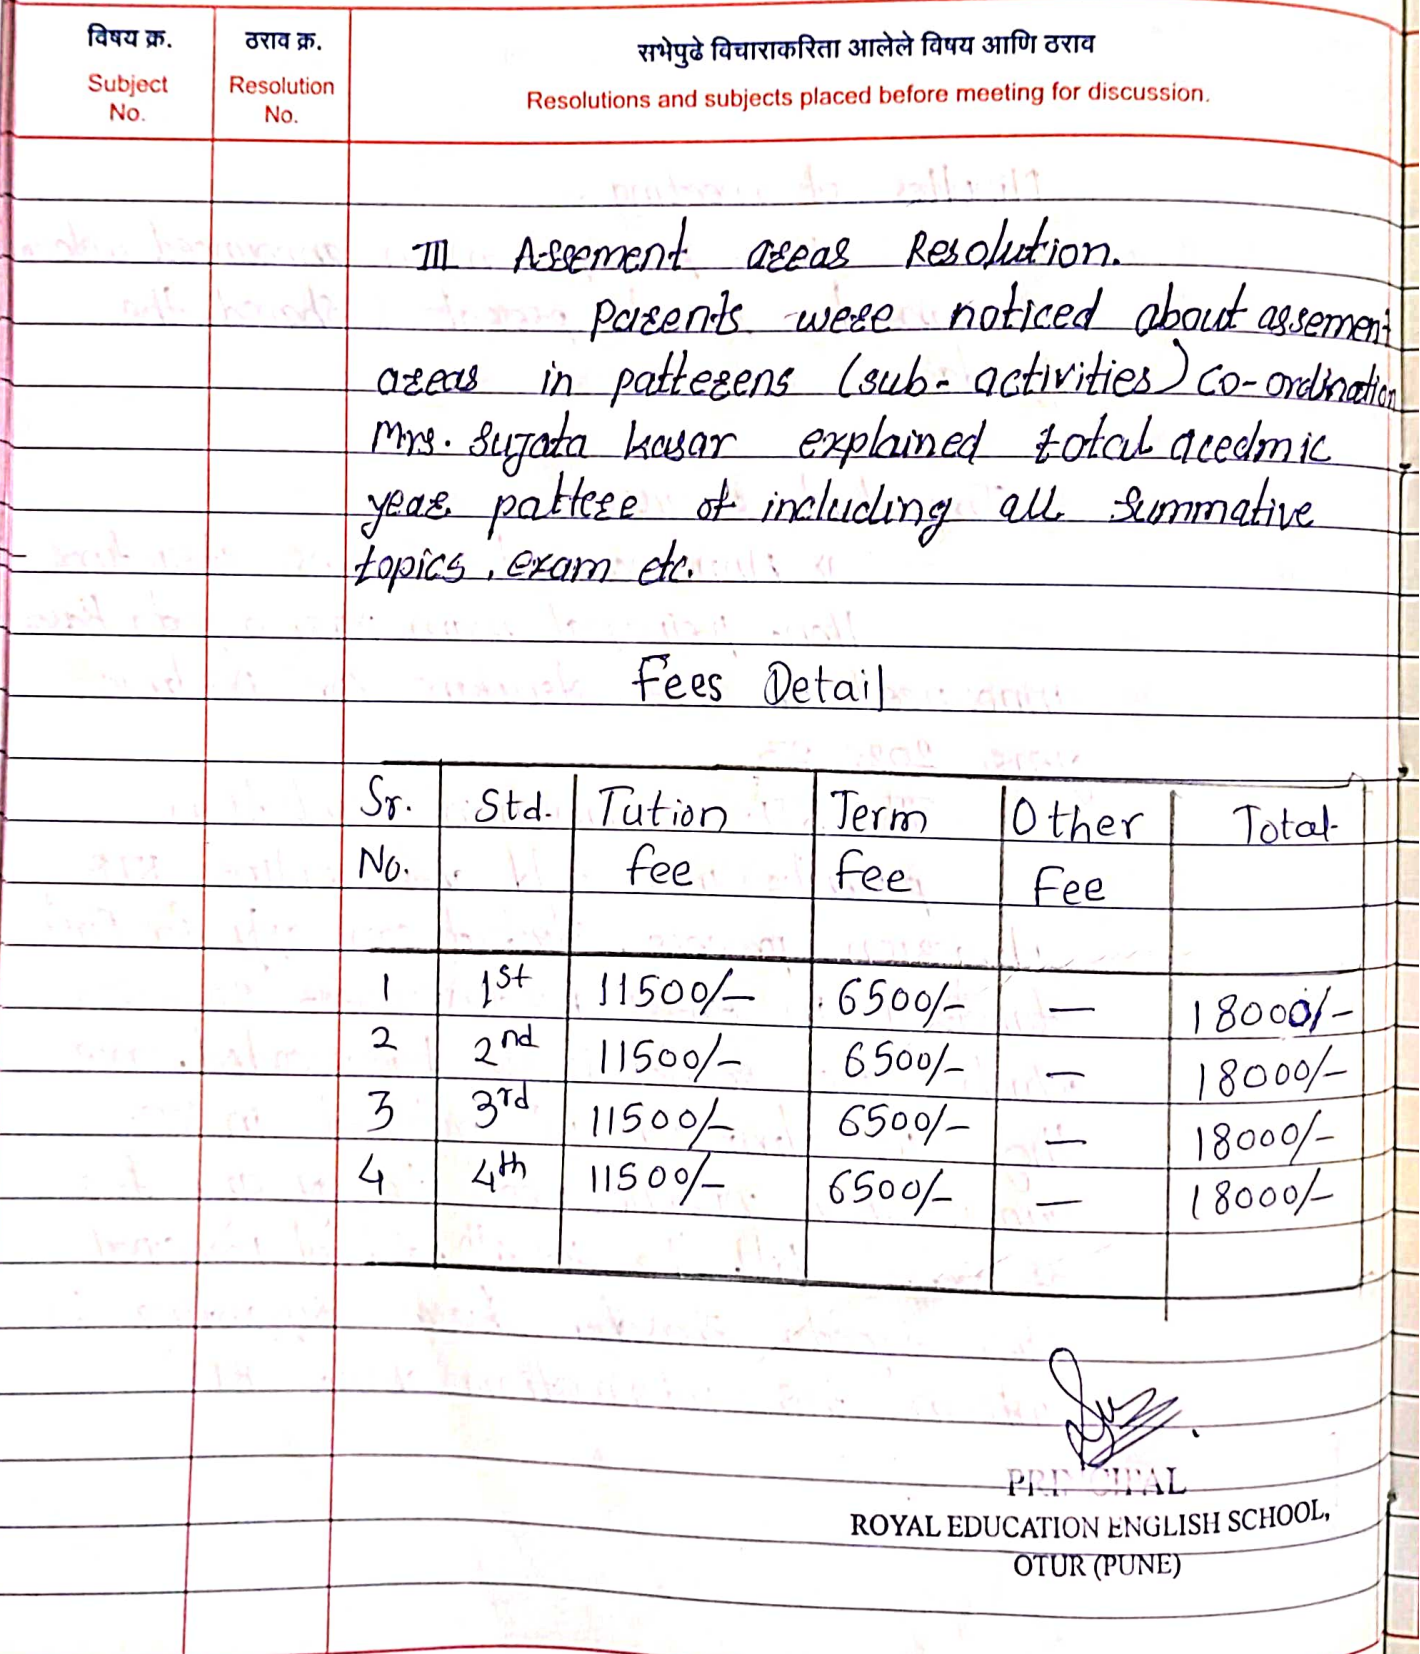 विषय क्र. ठराव क्र. सभेपुढे विचाराकरिता आलेले विषय आणि ठराव
Subject No. Resolution No. Resolutions and subjects placed before meeting for discussion.
III Assement areas Resolution.
Parents were noticed about assement
areas in patterens (sub-activities) co-ordination
Mrs. Sujata Kasar explained total acedmic
year pattere of including all summative
topics, exam etc.
Fees Detail
Sr. Std. Tution Term Other Total
No. fee fee Fee
1 1st 11500/- 6500/- — 18000/-
2 2nd 11500/- 6500/- — 18000/-
3 3rd 11500/- 6500/- — 18000/-
4 4th 11500/- 6500/- — 18000/-
PRINCIPAL
ROYAL EDUCATION ENGLISH SCHOOL,
OTUR (PUNE)